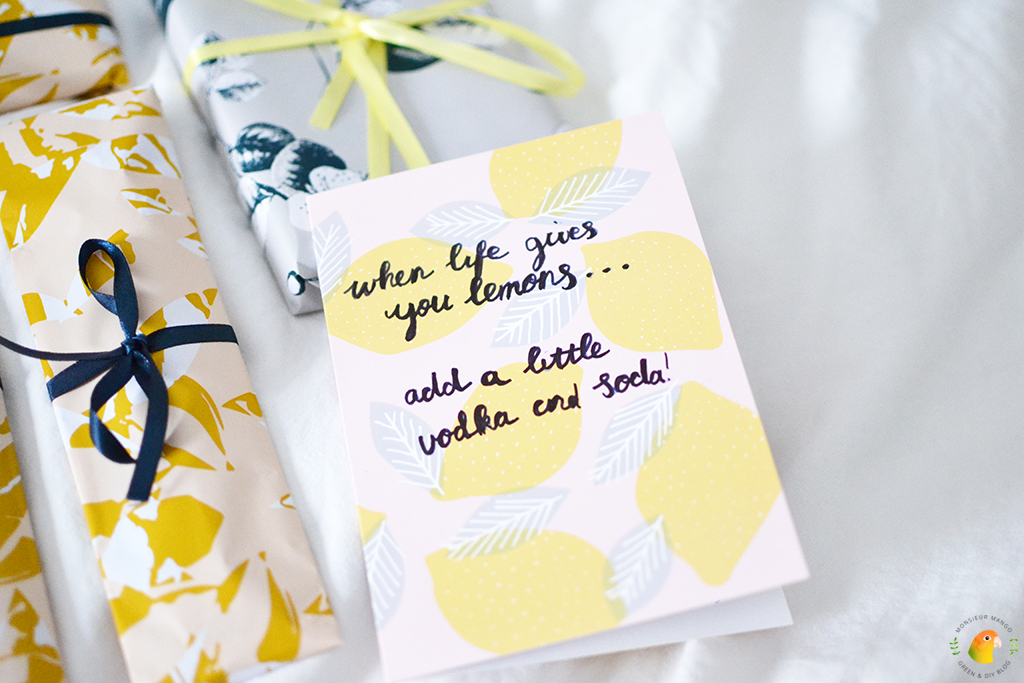 when life gives
you lemons...
add a little
vodka and soda!
MONSIEUR MANGO
GREEN & DIY BLOG